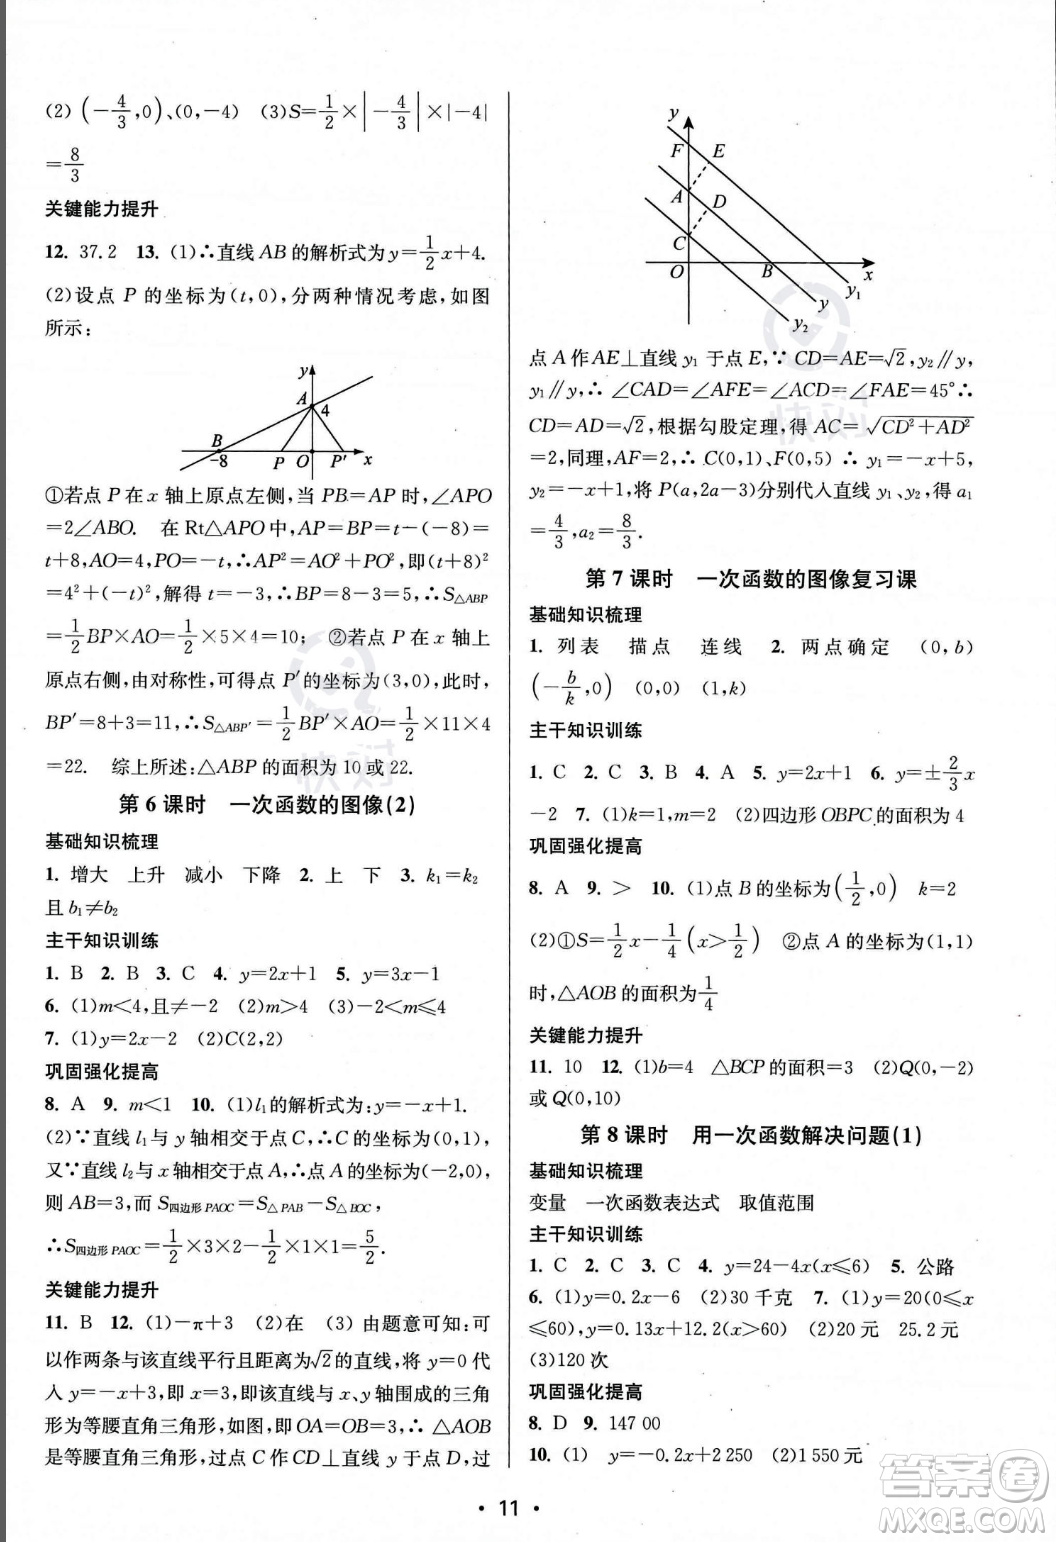 (2) (−4/3,0)、(0,−4)　(3)S=1/2×|−4/3|×|−4|
=8/3
关键能力提升
12. 37.2　13. (1)∴直线 AB 的解析式为 y=1/2x+4.
(2)设点 P 的坐标为(t,0),分两种情况考虑,如图
所示:
y
A
4
B
−8
P
O
P′
x
①若点 P 在 x 轴上原点左侧,当 PB=AP 时,∠APO
=2∠ABO.　在 Rt△APO 中,AP=BP=t−(−8)=
t+8,AO=4,PO=−t,∴AP²=AO²+PO²,即(t+8)²
=4²+(−t)²,解得 t=−3,∴BP=8−3=5,∴S△ABP
=1/2BP×AO=1/2×5×4=10;　②若点 P 在 x 轴上
原点右侧,由对称性,可得点 P′的坐标为(3,0),此时,
BP′=8+3=11,∴S△ABP′=1/2BP′×AO=1/2×11×4
=22.　综上所述:△ABP 的面积为 10 或 22.
第 6 课时　一次函数的图像(2)
基础知识梳理
1. 增大　上升　减小　下降　2. 上　下　3. k₁=k₂
且 b₁≠b₂
主干知识训练
1. B　2. B　3. C　4. y=2x+1　5. y=3x−1
6. (1)m<4,且≠−2　(2)m>4　(3)−2<m≤4
7. (1)y=2x−2　(2)C(2,2)
巩固强化提高
8. A　9. m<1　10. (1)l₁的解析式为:y=−x+1.
(2)∵直线 l₁与 y 轴相交于点 C,∴C 的坐标为(0,1)
又∵直线 l₂与 x 轴相交于点 A,∴点 A 的坐标为(−2,0),
则 AB=3,而 S四边形PAOC=S△PAB−S△BOC,
∴S四边形PAOC=1/2×3×2−1/2×1×1=5/2
关键能力提升
11. B　12. (1)−π+3　(2)在　(3) 由题意可知:可
以作两条与该直线平行且距离为√2的直线,将 y=0 代
入 y=−x+3,即 x=3,即该直线与 x 轴围成的三角
形为等腰直角三角形,如图,即 OA=OB=3,∴△AOB
是等腰直角三角形,过点 C 作 CD⊥直线 y 于点 D,过
y
F
E
A
D
C
O
B
x
y₁
y
y₂
点 A 作 AE⊥直线 y₁ 于点 E,∵ CD=AE=√2,y₂∥y,
y₁∥y,∴∠CAD=∠AFE=∠ACD=∠FAE=45°∴
CD=AD=√2,根据勾股定理,得 AC=√CD²+AD²
=2,同理,AF=2,∴ C(0,1)、F(0,5) ∴ y₁=−x+5,
y₂=−x+1,将 P(a,2a−3)分别代入直线 y₁、y₂,得 a₁
=4/3,a₂=8/3.
第 7 课时　一次函数的图像复习课
基础知识梳理
1. 列表　描点　连线　2. 两点确定　(0,b)
(−b/k,0)　(0,0)　(1,k)
主干知识训练
1. C　2. C　3. B　4. A　5. y=2x+1　6. y=±2/3x
−2　7. (1)k=1,m=2　(2)四边形 OBPC 的面积为 4
巩固强化提高
8. A　9. >　10. (1)点 B 的坐标为(1/2,0)　k=2
(2)①S=1/2x−1/4(x>1/2)　②点 A 的坐标为(1,1)
时,△AOB 的面积为1/4
关键能力提升
11. 10　12. (1)b=4　△BCP 的面积=3　(2)Q(0,−2)
或 Q(0,10)
第 8 课时　用一次函数解决问题(1)
基础知识梳理
变量　一次函数表达式　取值范围
主干知识训练
1. C　2. C　3. C　4. y=24−4x(x≤6)　5. 公路
6. (1)y=0.2x−6　(2)30 千克　7. (1)y=20(0≤x
≤60),y=0.13x+12.2(x>60)　(2)20 元　25.2 元
(3)120 次
巩固强化提高
8. D　9. 147 00
10. (1)　y=−0.2x+2 250　(2)1 550 元
• 11 •
快对
快对
答案圈
MXQE.COM